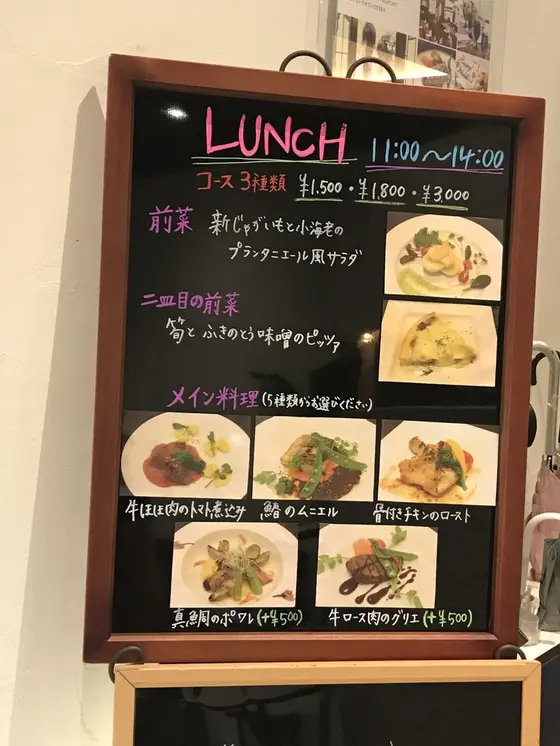 LUNCH 11:00〜14:00
コース3種類 ¥1.500・¥1.800・¥3.000
前菜 新じゃがいもと小海老の
プランタニエール風サラダ
二皿目の前菜
筍とふきのとう味噌のピッツァ
メイン料理(5種類からお選びください)
牛ほほ肉のトマト煮込み 鰆のムニエル 骨付きチキンのロースト
真鯛のポワレ(+¥500) 牛ロース肉のグリエ(+¥500)